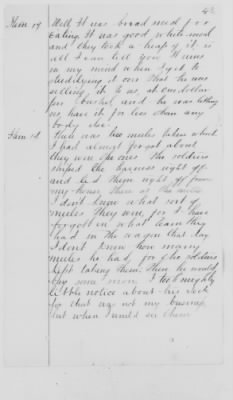 42
Item 17 Well it was bread meal for
eating. It was good white meal
and they took a heap of it is
all I can tell you. It runs
in my mind when I get to
studdying it over that he was
selling it to us at one dollar
per bushel and he was letting
us have it for less than any
body else.
Item 18. There was two mules taken which
I had almost forgot about
they were the ones the soldiers
striped the harness right off
and led them right off from
my house, there at the mill.
I dont know what sort of
mules they were, for I have
forgot in what team they
had in the wagon that day.
I dont know how many
mules he had, for the soldiers
kept taking them. Then he would
buy some more. I took mighty
little notice about his stock
for that was not my business,
but when we'd see them